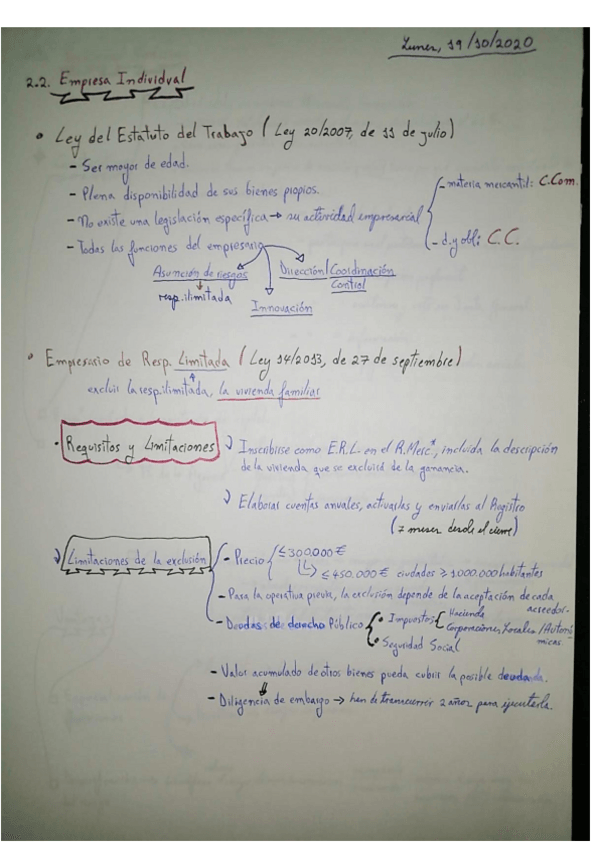 Lunes, 19/10/2020
2.2. Empresa Individual
• Ley del Estatuto del Trabajo (Ley 20/2007, de 11 de julio)
- Ser mayor de edad.
- Plena disponibilidad de sus bienes propios.
- No existe una legislación específica → su actividad empresarial
- materia mercantil: C.Com.
- d. y obli: C.C.
- Todas las funciones del empresario
Asunción de riesgos
resp. ilimitada
Innovación
Dirección/Coordinación
Control
• Empresario de Resp. Limitada (Ley 14/2013, de 27 de septiembre)
excluir la resp. ilimitada, la vivienda familiar
• Requisitos y Limitaciones
Inscribirse como E.R.L. en el R.Merc*, incluida la descripción
de la vivienda que se excluirá de la ganancia.
Elaborar cuentas anuales, activarlas y enviarlas al Registro
(7 meses desde el cierre)
Limitaciones de la exclusión
- Precio
≤ 300.000 €
≤ 450.000 € ciudades ≥ 1.000.000 habitantes
- Para la operativa previa, la exclusión depende de la aceptación de cada
acreedor.
- Deudas de derecho Público
• Impuestos
Hacienda
Corporaciones Locales/Autonó
micas
• Seguridad Social
- Valor acumulado de otros bienes pueda cubrir la posible deudada.
- Diligencia de embargo → han de transcurrir 2 años para ejecutarla.